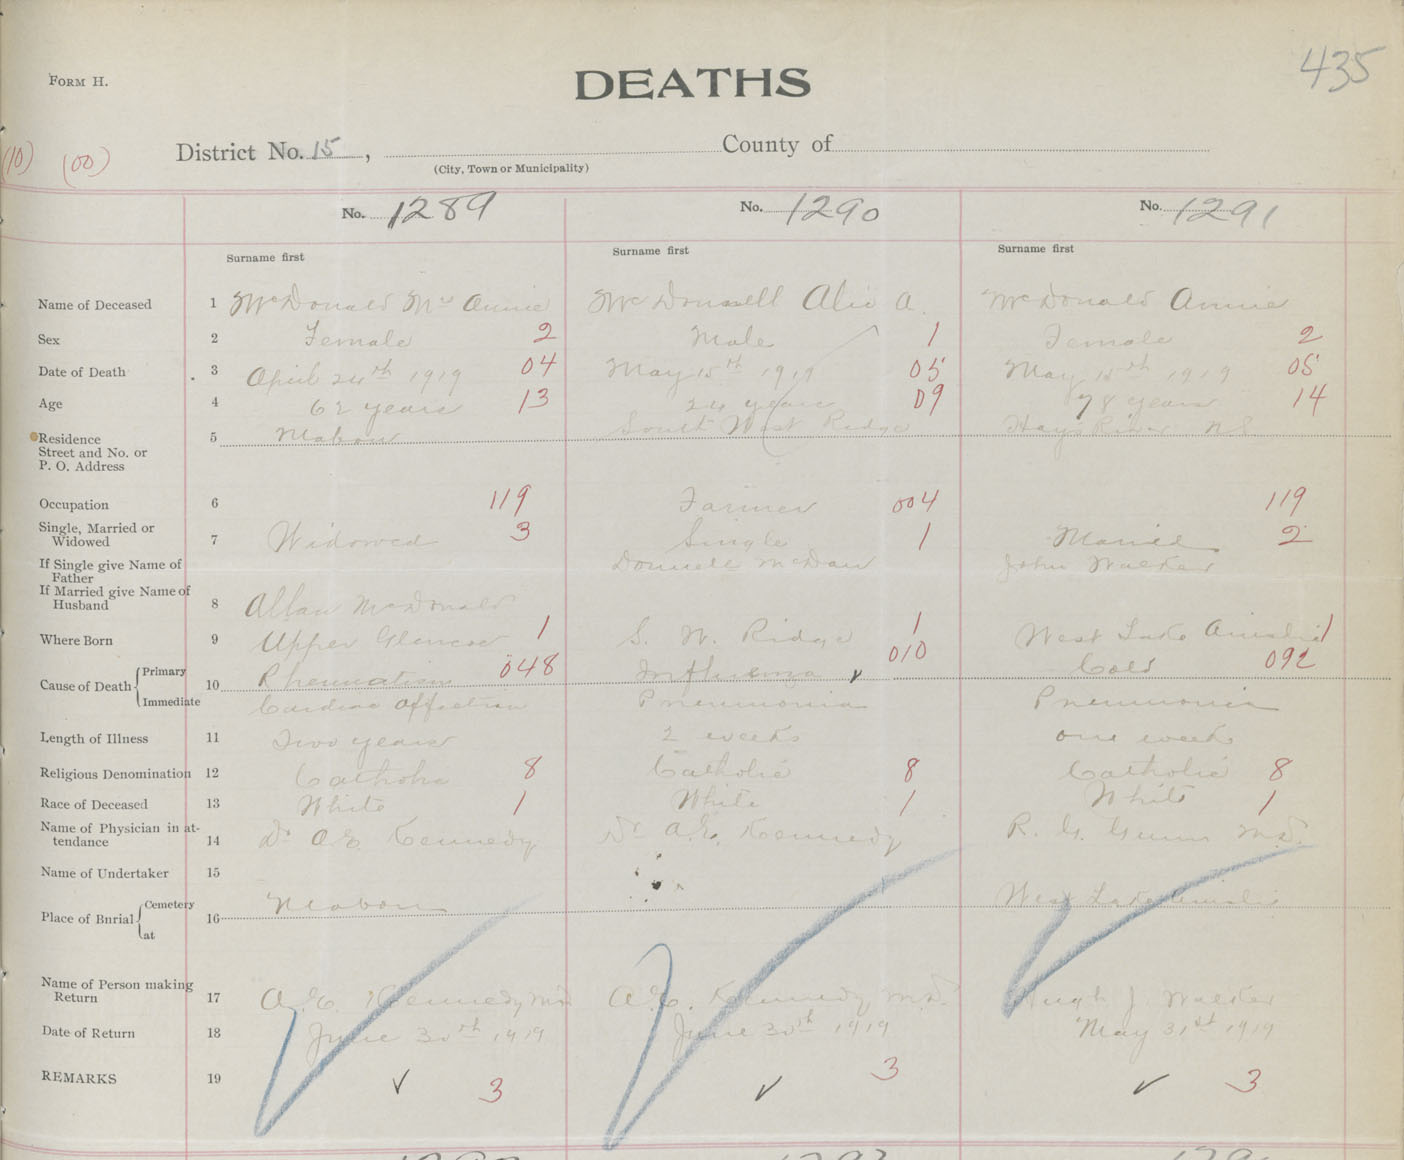 435
FORM H.
DEATHS
(10) (00) District No. 15, County of
(City, Town or Municipality)
No. 1289 No. 1290 No. 1291
Surname first Surname first Surname first
Name of Deceased 1 McDonald Mrs Annie McDonnell Alex A. McDonald Annie
Sex 2 Female 2 Male 1 Female 2
Date of Death 3 April 24th 1919 04 May 15th 1919 05 May 15th 1919 05
Age 4 62 years 13 24 years 09 78 years 14
Residence 5 Mabou South West Ridge Hays River N.S.
Street and No. or
P. O. Address
Occupation 6 119 Farmer 004 119
Single, Married or
Widowed 7 Widowed 3 Single 1 Married 2
If Single give Name of
Father Donnell John Walker
If Married give Name of
Husband 8 Allan McDonald
Where Born 9 Upper Glencoe 1 S. W. Ridge 1 West Lake Ainslie 1
Cause of Death Primary 10 Rheumatism 048 Influenza 010 Cold 092
Immediate Cardiac affection Pneumonia Pneumonia
Length of Illness 11 Two years 2 weeks one week
Religious Denomination 12 Catholic 8 Catholic 8 Catholic 8
Race of Deceased 13 White 1 White 1 White 1
Name of Physician in at-
tendance 14 Dr A.E. Kennedy Dr A.E. Kennedy R. G. Gunn M.D.
Name of Undertaker 15
Place of Burial Cemetery 16 Mabou West Lake Ainslie
at
Name of Person making
Return 17 A.E. Kennedy M.D. A.E. Kennedy M.D. Hugh J. Walker
Date of Return 18 June 30th 1919 June 30th 1919 May 31st 1919
REMARKS 19 ✓ 3 ✓ 3 ✓ 3